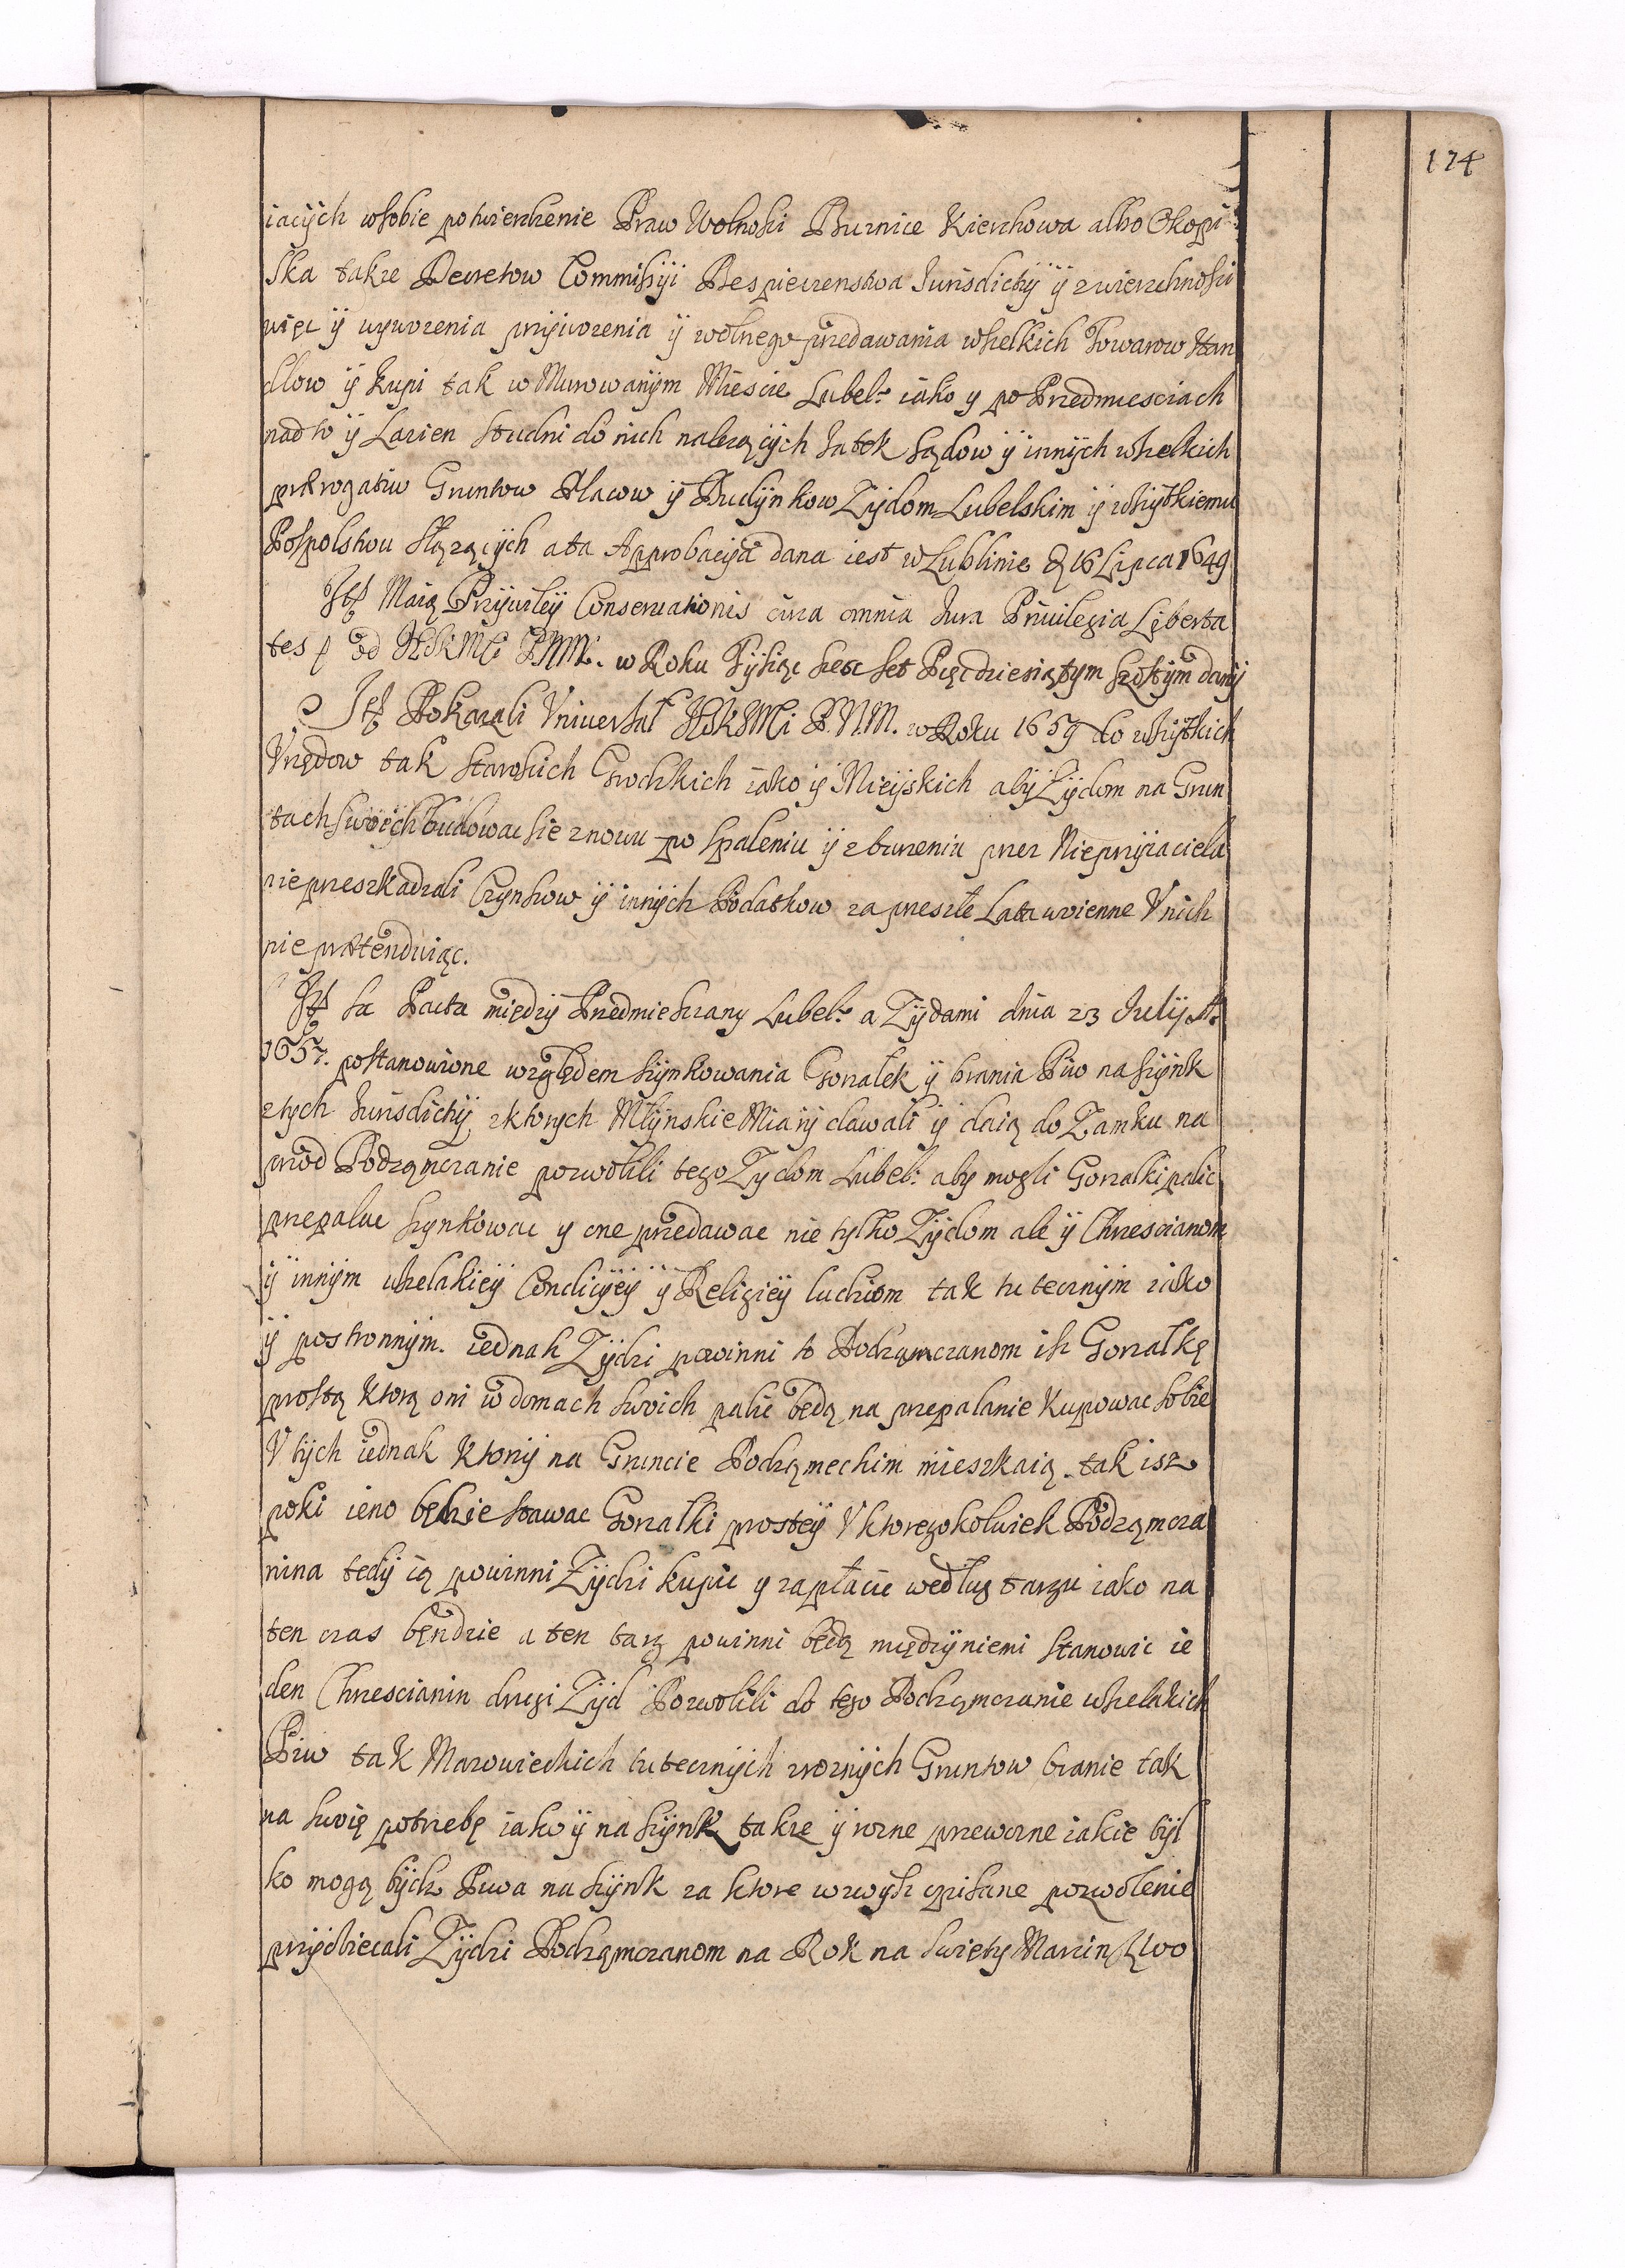 174
iacych wsobie potwierdzenie Praw Wolnosci Buznice Kierzhowa albo Okopi
ska takze Decretow Commissyi Bespieczenstwa Jurisdictÿ ÿ zwierzchnosci
więc ÿ wywozenia przÿwozenia ÿ wolnego przedawania wszelkich Towarow Han
dlow ÿ kupi tak w Murowanÿm Miescie Lubel: iako y po Przedmiesciach
nadto ÿ Lazien Studni do nich nalezącÿch Jatek Sądow ÿ innÿch wszelkich
prærogatiw Gruntow Placow ÿ Budÿnkow Zÿdom Lubelskim ÿ wszÿtkiemu
Pospolstwu słązącÿch a ta Approbacÿa dana iest w Lublinie D 16 Lipca 1649
Itt Maią Przÿwileÿ Conservationis circa omnia Jura Privilegia Liberta
tes od JKMCi PNM. w Roku Tysiąc szesc set Pięcdziesiątym szostÿm danÿ
Itt Pokazali Vniversał JKMCi P.N.M. w Roku 1659 do wszÿtkich
Vrzędow tak Staroscich Grodzkich iako ÿ Mieÿskich abÿ Zÿdom na Grun
tach swoich budowac sie znowu po spaleniu ÿ zburzeniu przez Nieprzÿiaciela
nieprzeszkadzali Czynszow ÿ innÿch Podatkow za przeszłe Lata woienne V nich
nie prætenduiąc.
Itt Sa Pacta międzÿ Przedmieszczany Lubel: a Zÿdami dnia 23 Julÿ A.
1657. postanowione względem szynkowania Gorzałek ÿ brania Piw na szÿnk
z tych Jurisdictÿ, z ktorych Młÿnskie Miarÿ dawali ÿ daią do Zamku na
przod Podzamczanie pozwolili tego Zydom Lubel: aby mogli Gorzałki palic
przepalac szynkowac y one przedawac nie tylko Zÿdom ale ÿ Chrzescianom
ÿ innÿm wszelakieÿ Condicÿeÿ ÿ Religieÿ ludziom tak tutecznÿm iako
ÿ postronnÿm. iednak Zÿdzi powinni to Podząmczanom isz Gorzałkę
prostą ktorą oni w domach swoich palic będą na przepalanie kupowac sobie
V tÿch iednak ktorÿ na Gruncie Podząmeckim mieszkaią. tak isz
poki ieno będzie stawac Gorzałki prosteÿ V ktoregokolwiek Podząmcza
nina tedÿ ią powinni Zÿdzi kupic y zapłacic według targu iako na
ten czas będzie a ten targ powinni będą międzÿ niemi stanowic ie
den Chrzescianin drugi Zÿd Pozwolili do tego Podząmczanie wszelakich
Piw tak Mazowieckich tutecznÿch z roznÿch Gruntow branie tak
na swoię potrzebę iako ÿ na szÿnk takze ÿ rozne przewozne iakie tÿl
ko mogą bÿdz Piwa na szÿnk za ktore wzwysz opisane pozwolenie
przÿobiecali Zÿdzi Podząmczanom na Rok na Swięty Marcin